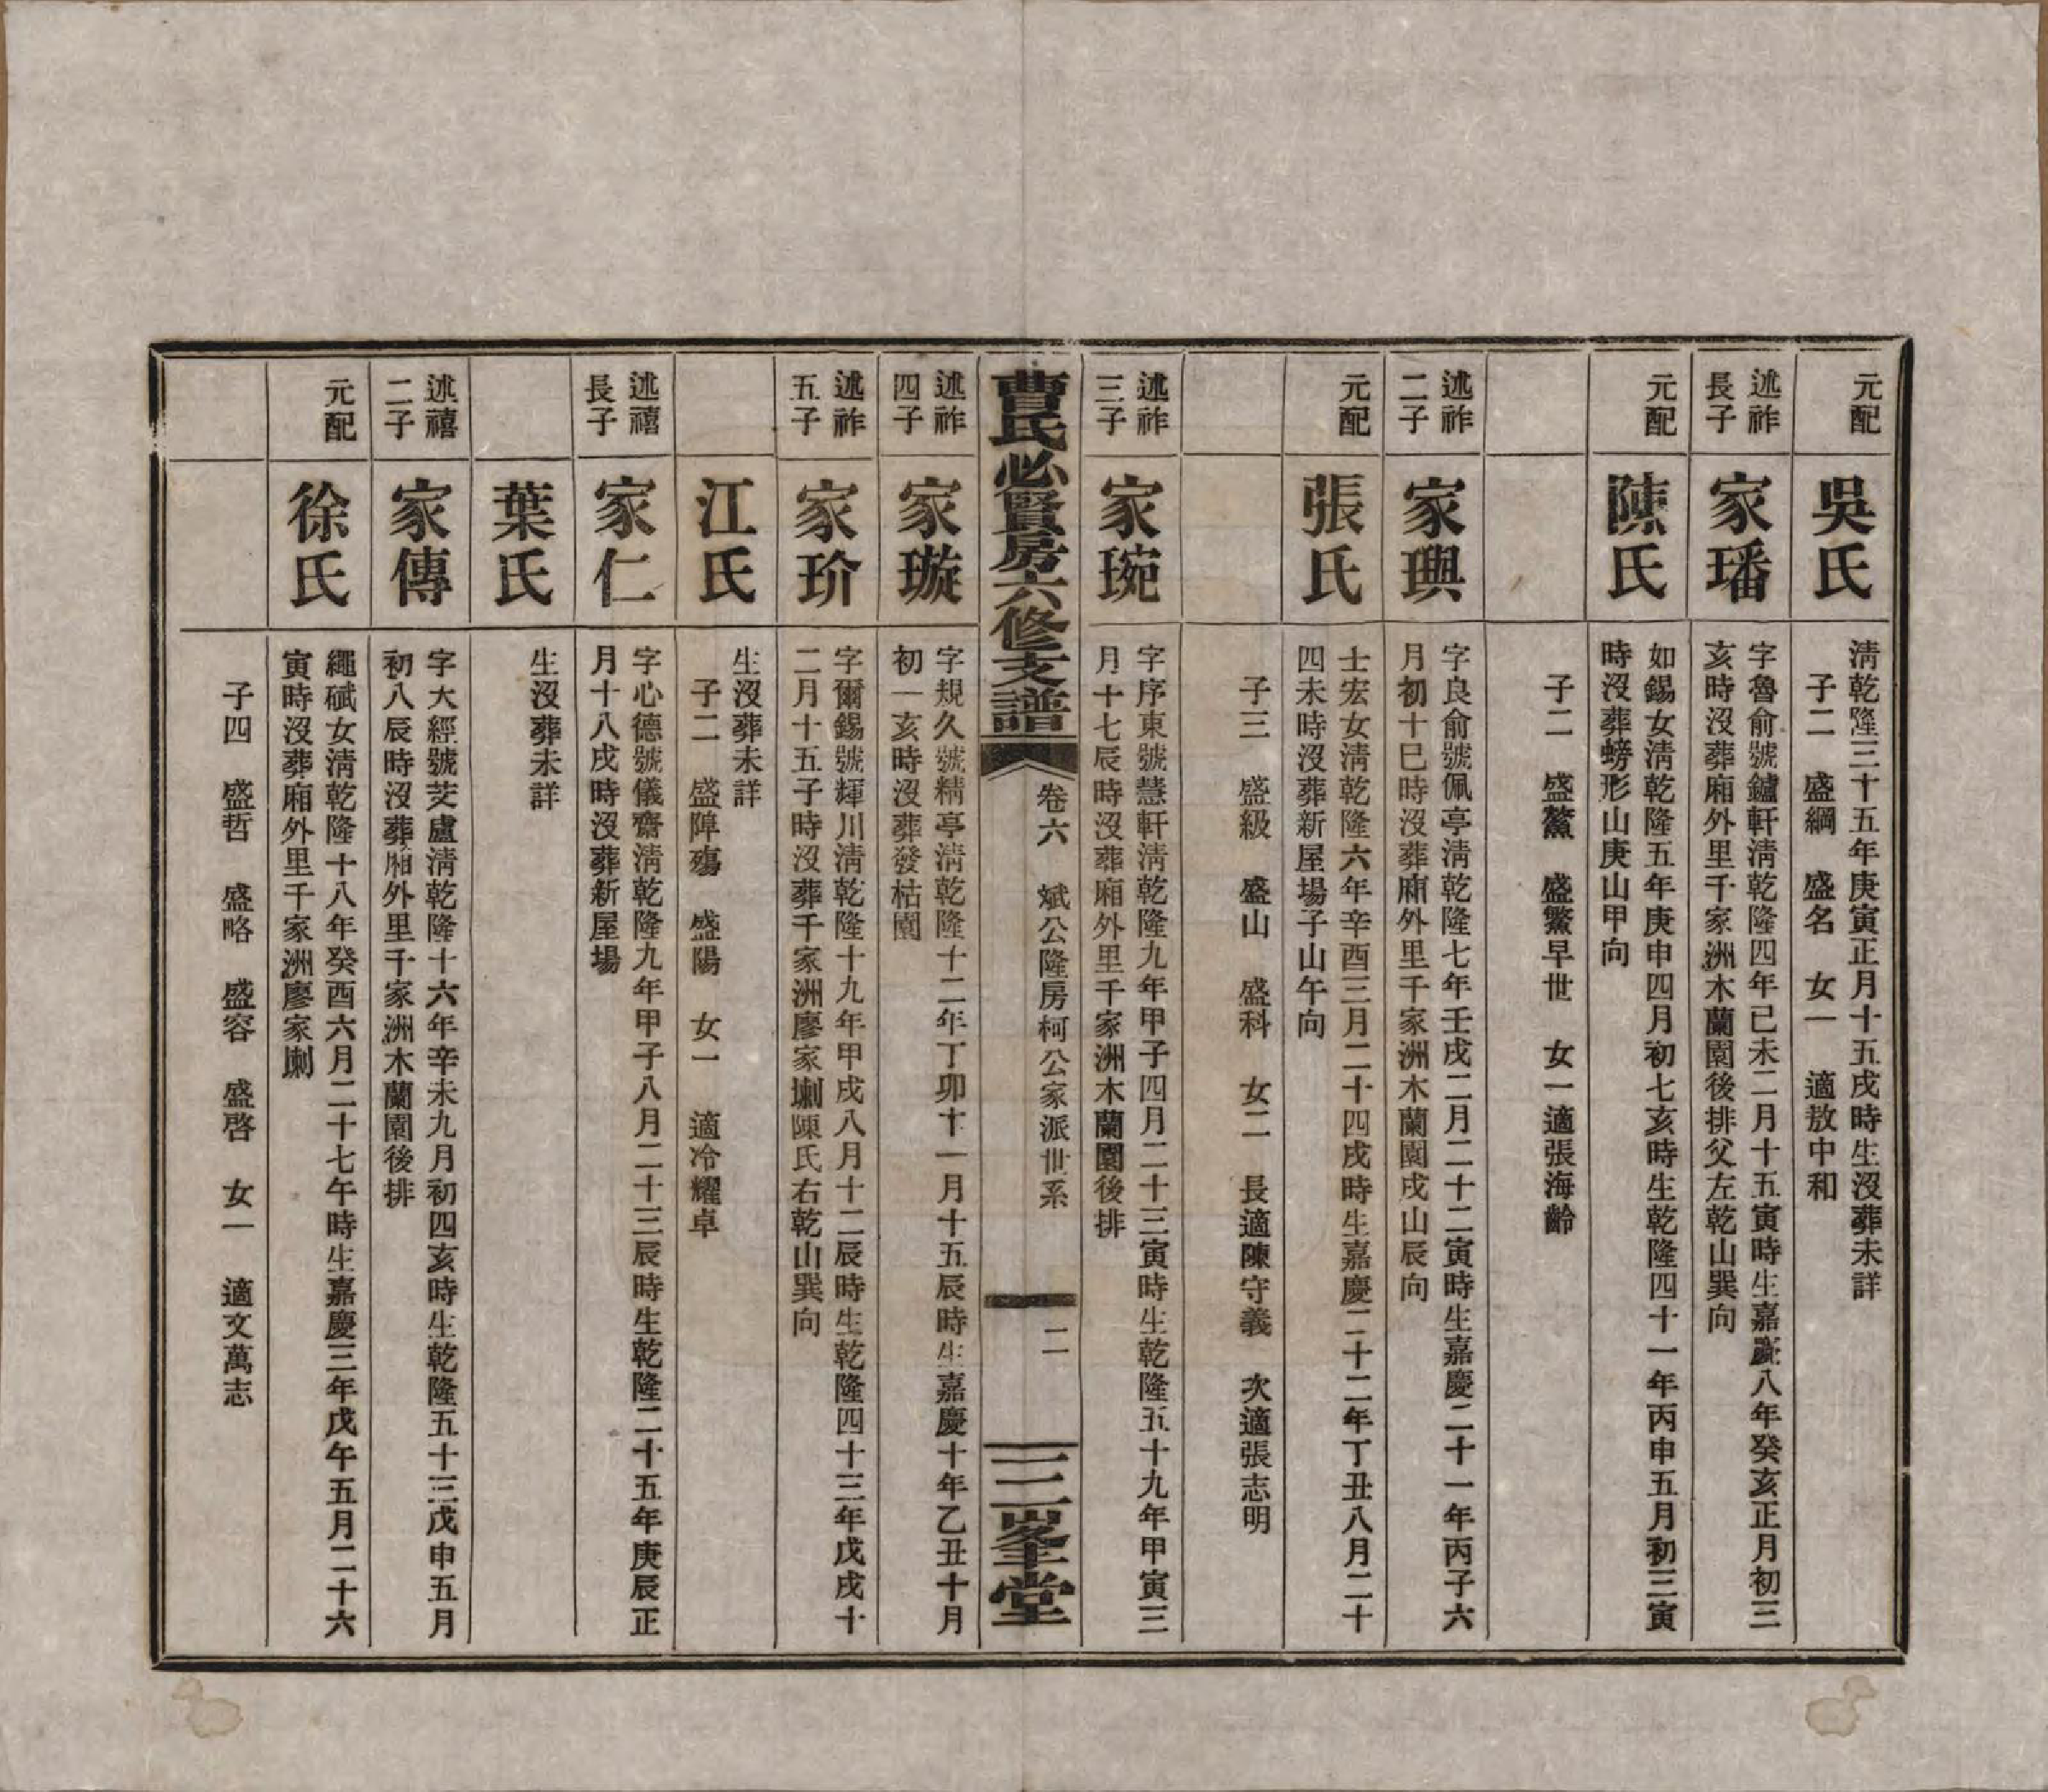 元配
吳氏
淸乾隆三十五年庚寅正月十五戌時生沒葬未詳
子二　盛綱　盛名　女一　適敖中和
述祚
長子
家璠
字魯俞號鑪軒淸乾隆四年已未二月十五寅時生嘉慶八年癸亥正月初三
亥時沒葬廂外里千家洲木蘭園後排父左乾山巽向
元配
陳氏
如錫女淸乾隆五年庚申四月初七亥時生乾隆四十一年丙申五月初三寅
時沒葬螃形山庚山甲向
子二　盛鰲　盛鱉早世　女一適張海齡
述祚
二子
家璵
字良俞號佩亭淸乾隆七年壬戌二月二十二寅時生嘉慶二十一年丙子六
月初十巳時沒葬廂外里千家洲木蘭園戌山辰向
元配
張氏
士宏女淸乾隆六年辛酉三月二十四戌時生嘉慶二十二年丁丑八月二十
四未時沒葬新屋場子山午向
子三　盛級　盛山　盛科　女二　長適陳守義　次適張志明
述祚
三子
家琬
字序東號慧軒淸乾隆九年甲子四月二十三寅時生乾隆五十九年甲寅三
月十七辰時沒葬廂外里千家洲木蘭園後排
曹氏必賢房六修支譜
卷六　斌公隆房柯公家派世系
二
三峯堂
述祚
四子
家璇
字規久號精亭淸乾隆十二年丁卯十一月十五辰時生嘉慶十年乙丑十月
初一亥時沒葬發枯園
述祚
五子
家玠
字爾錫號輝川淸乾隆十九年甲戌八月十二辰時生乾隆四十三年戊戌十
二月十五子時沒葬千家洲廖家塅陳氏右乾山巽向
江氏
生沒葬未詳
子二　盛障殤　盛陽　女一　適冷耀卓
述禧
長子
家仁
字心德號儀齋淸乾隆九年甲子八月二十三辰時生乾隆二十五年庚辰正
月十八戌時沒葬新屋場
葉氏
生沒葬未詳
述禧
二子
家傳
字大經號芠盧淸乾隆十六年辛未九月初四亥時生乾隆五十三戊申五月
初八辰時沒葬廂外里千家洲木蘭園後排
元配
徐氏
繩斌女淸乾隆十八年癸酉六月二十七午時生嘉慶三年戊午五月二十六
寅時沒葬廂外里千家洲廖家塅
子四　盛哲　盛略　盛容　盛啓　女一　適文萬志